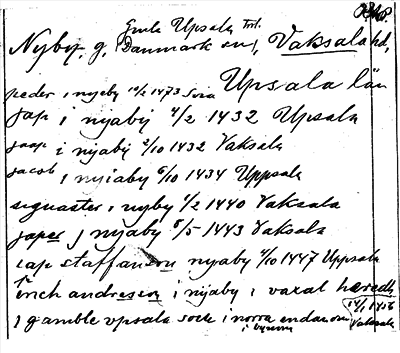 Gamla Upsala tort.
Nyby, g, Danmark sn, Vaksala hd,
Upsala län
peder i nyby 14/2 1473 Sora
jap i nyabij 4/2 1432 Upsala
jaap i niabij 2/10 1432 Vaksala
jacob i nyiaby 6/10 1434 Uppsala
signaster i nyby 4/2 1440 Vaksala
japer j nyiaby 5/5 1443 Vaksala
iap staffanson nyaby 4/10 1447 Uppsala
erich andresson i nijaby i vaxal heredh
j gamble upsala sock i norra endanom 14/1 1456
i byenom Vaksala